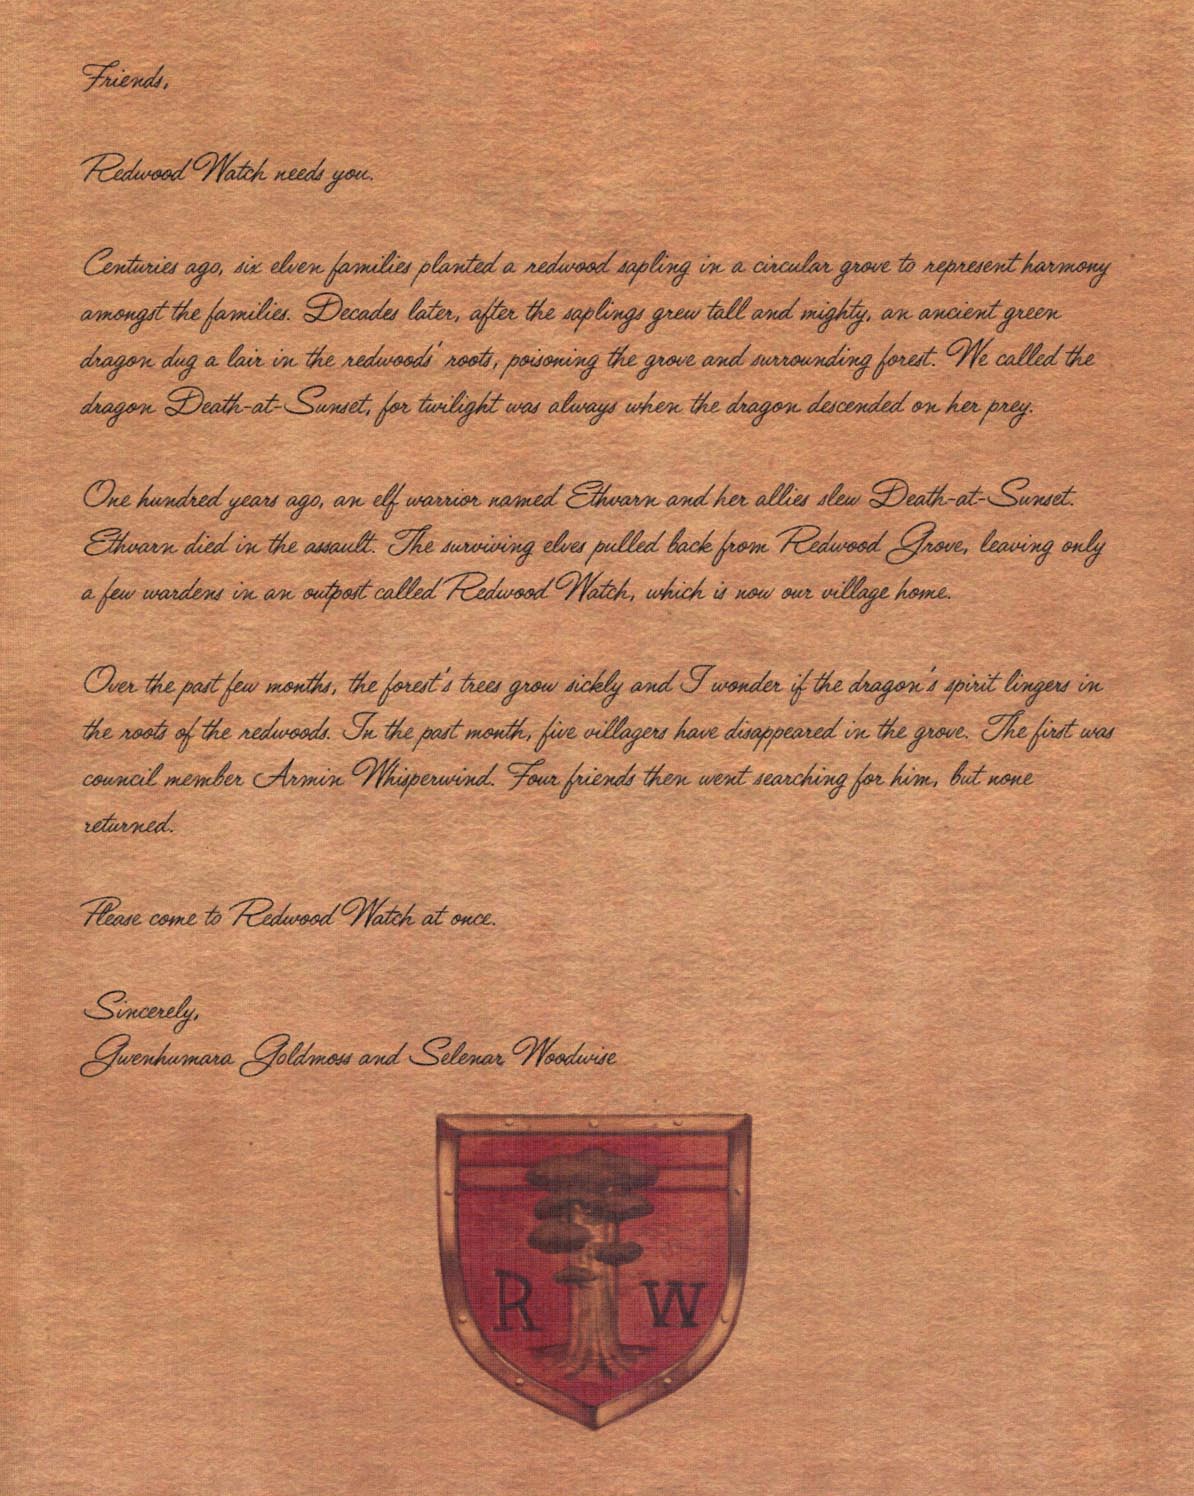 Friends,
Redwood Watch needs you.
Centuries ago, six elven families planted a redwood sapling in a circular grove to represent harmony
amongst the families. Decades later, after the saplings grew tall and mighty, an ancient green
dragon dug a lair in the redwoods' roots, poisoning the grove and surrounding forest. We called the
dragon Death-at-Sunset, for twilight was always when the dragon descended on her prey.
One hundred years ago, an elf warrior named Ethvarn and her allies slew Death-at-Sunset.
Ethvarn died in the assault. The surviving elves pulled back from Redwood Grove, leaving only
a few wardens in an outpost called Redwood Watch, which is now our village home.
Over the past few months, the forest's trees grow sickly and I wonder if the dragon's spirit lingers in
the roots of the redwoods. In the past month, five villagers have disappeared in the grove. The first was
council member Armin Whisperwind. Four friends then went searching for him, but none
returned.
Please come to Redwood Watch at once.
Sincerely,
Gwenhumara Goldmoss and Selenar Woodwise
R W